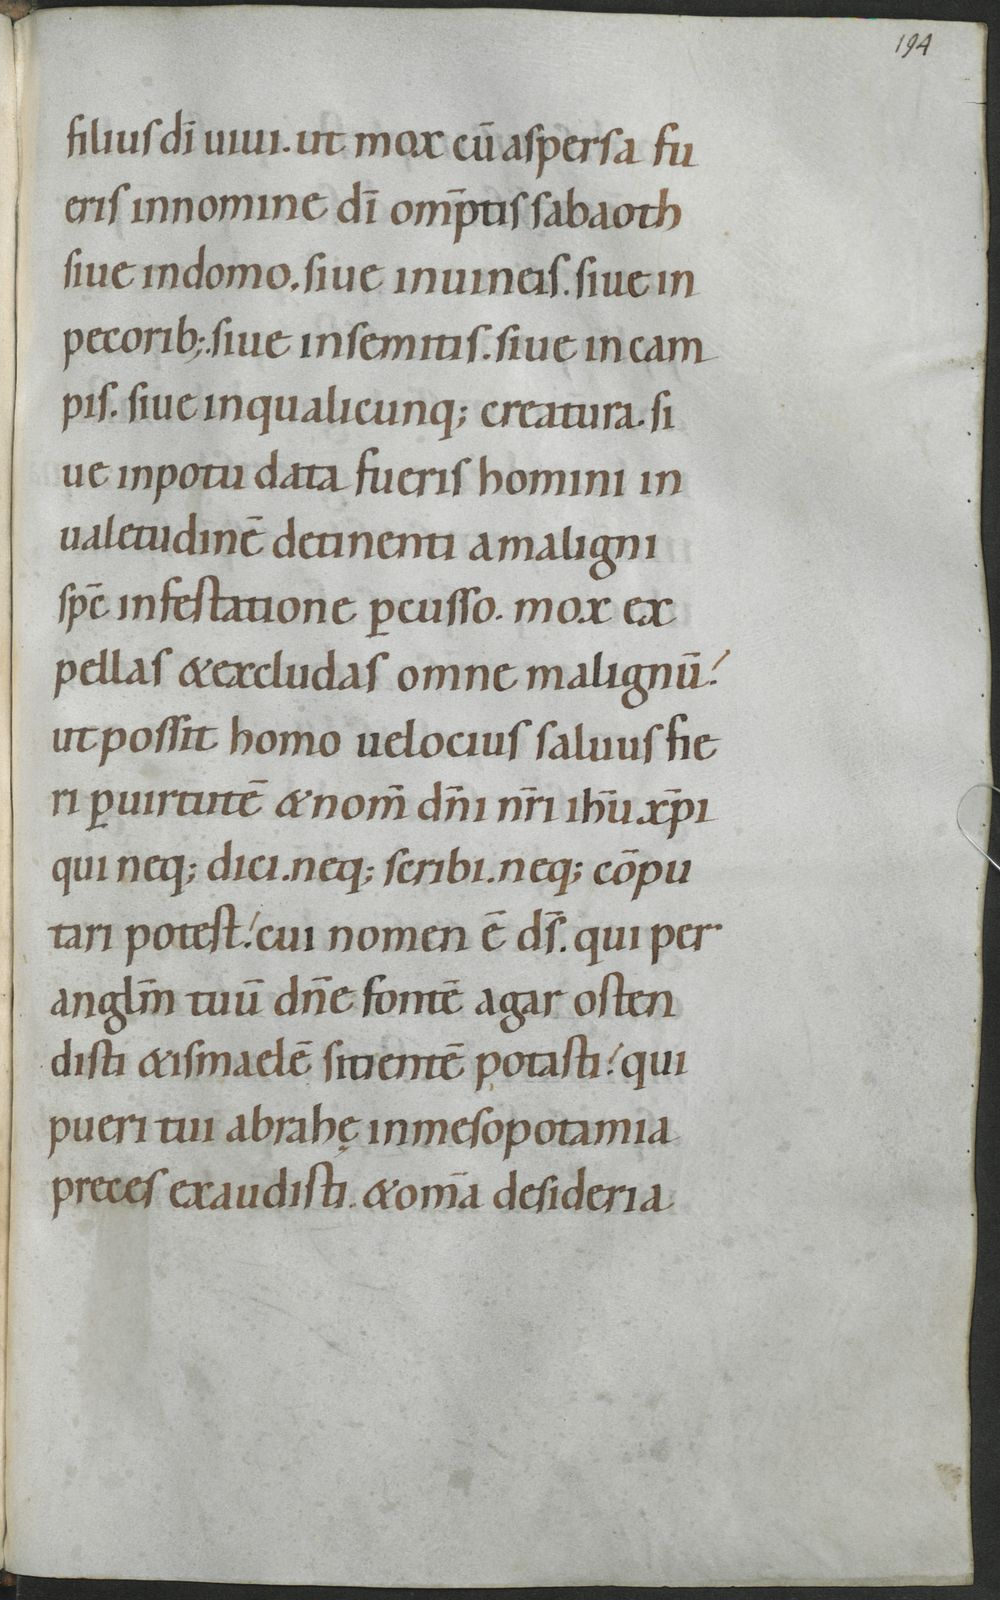 194
filius dī uiui. ut mox cū aspersa fu
eris innomine dī om̄ptis sabaoth
siue indomo. siue inuineis. siue in
pecorib; siue insemitis. siue in cam
pis. siue inqualicunq; creatura. si
ue inpotu data fueris homini in
ualetudinē detinenti amaligni
sp̄c infestatione ꝑcusso. mox ex
pellas &excludas omne malignū.
ut possit homo uelocius saluus fie
ri ꝑuirtutē &nom̄ dn̄i nr̄i ihū xp̄i
qui neq; dici. neq; scribi. neq; cōpu
tari potest. cui nomen ē ds̄. qui per
anglm̄ tuū dn̄e fontē agar osten
disti &ismaelē sitientē potasti. qui
pueri tui abrahę inmesopotamia
preces exaudisti. &om̄a desideria